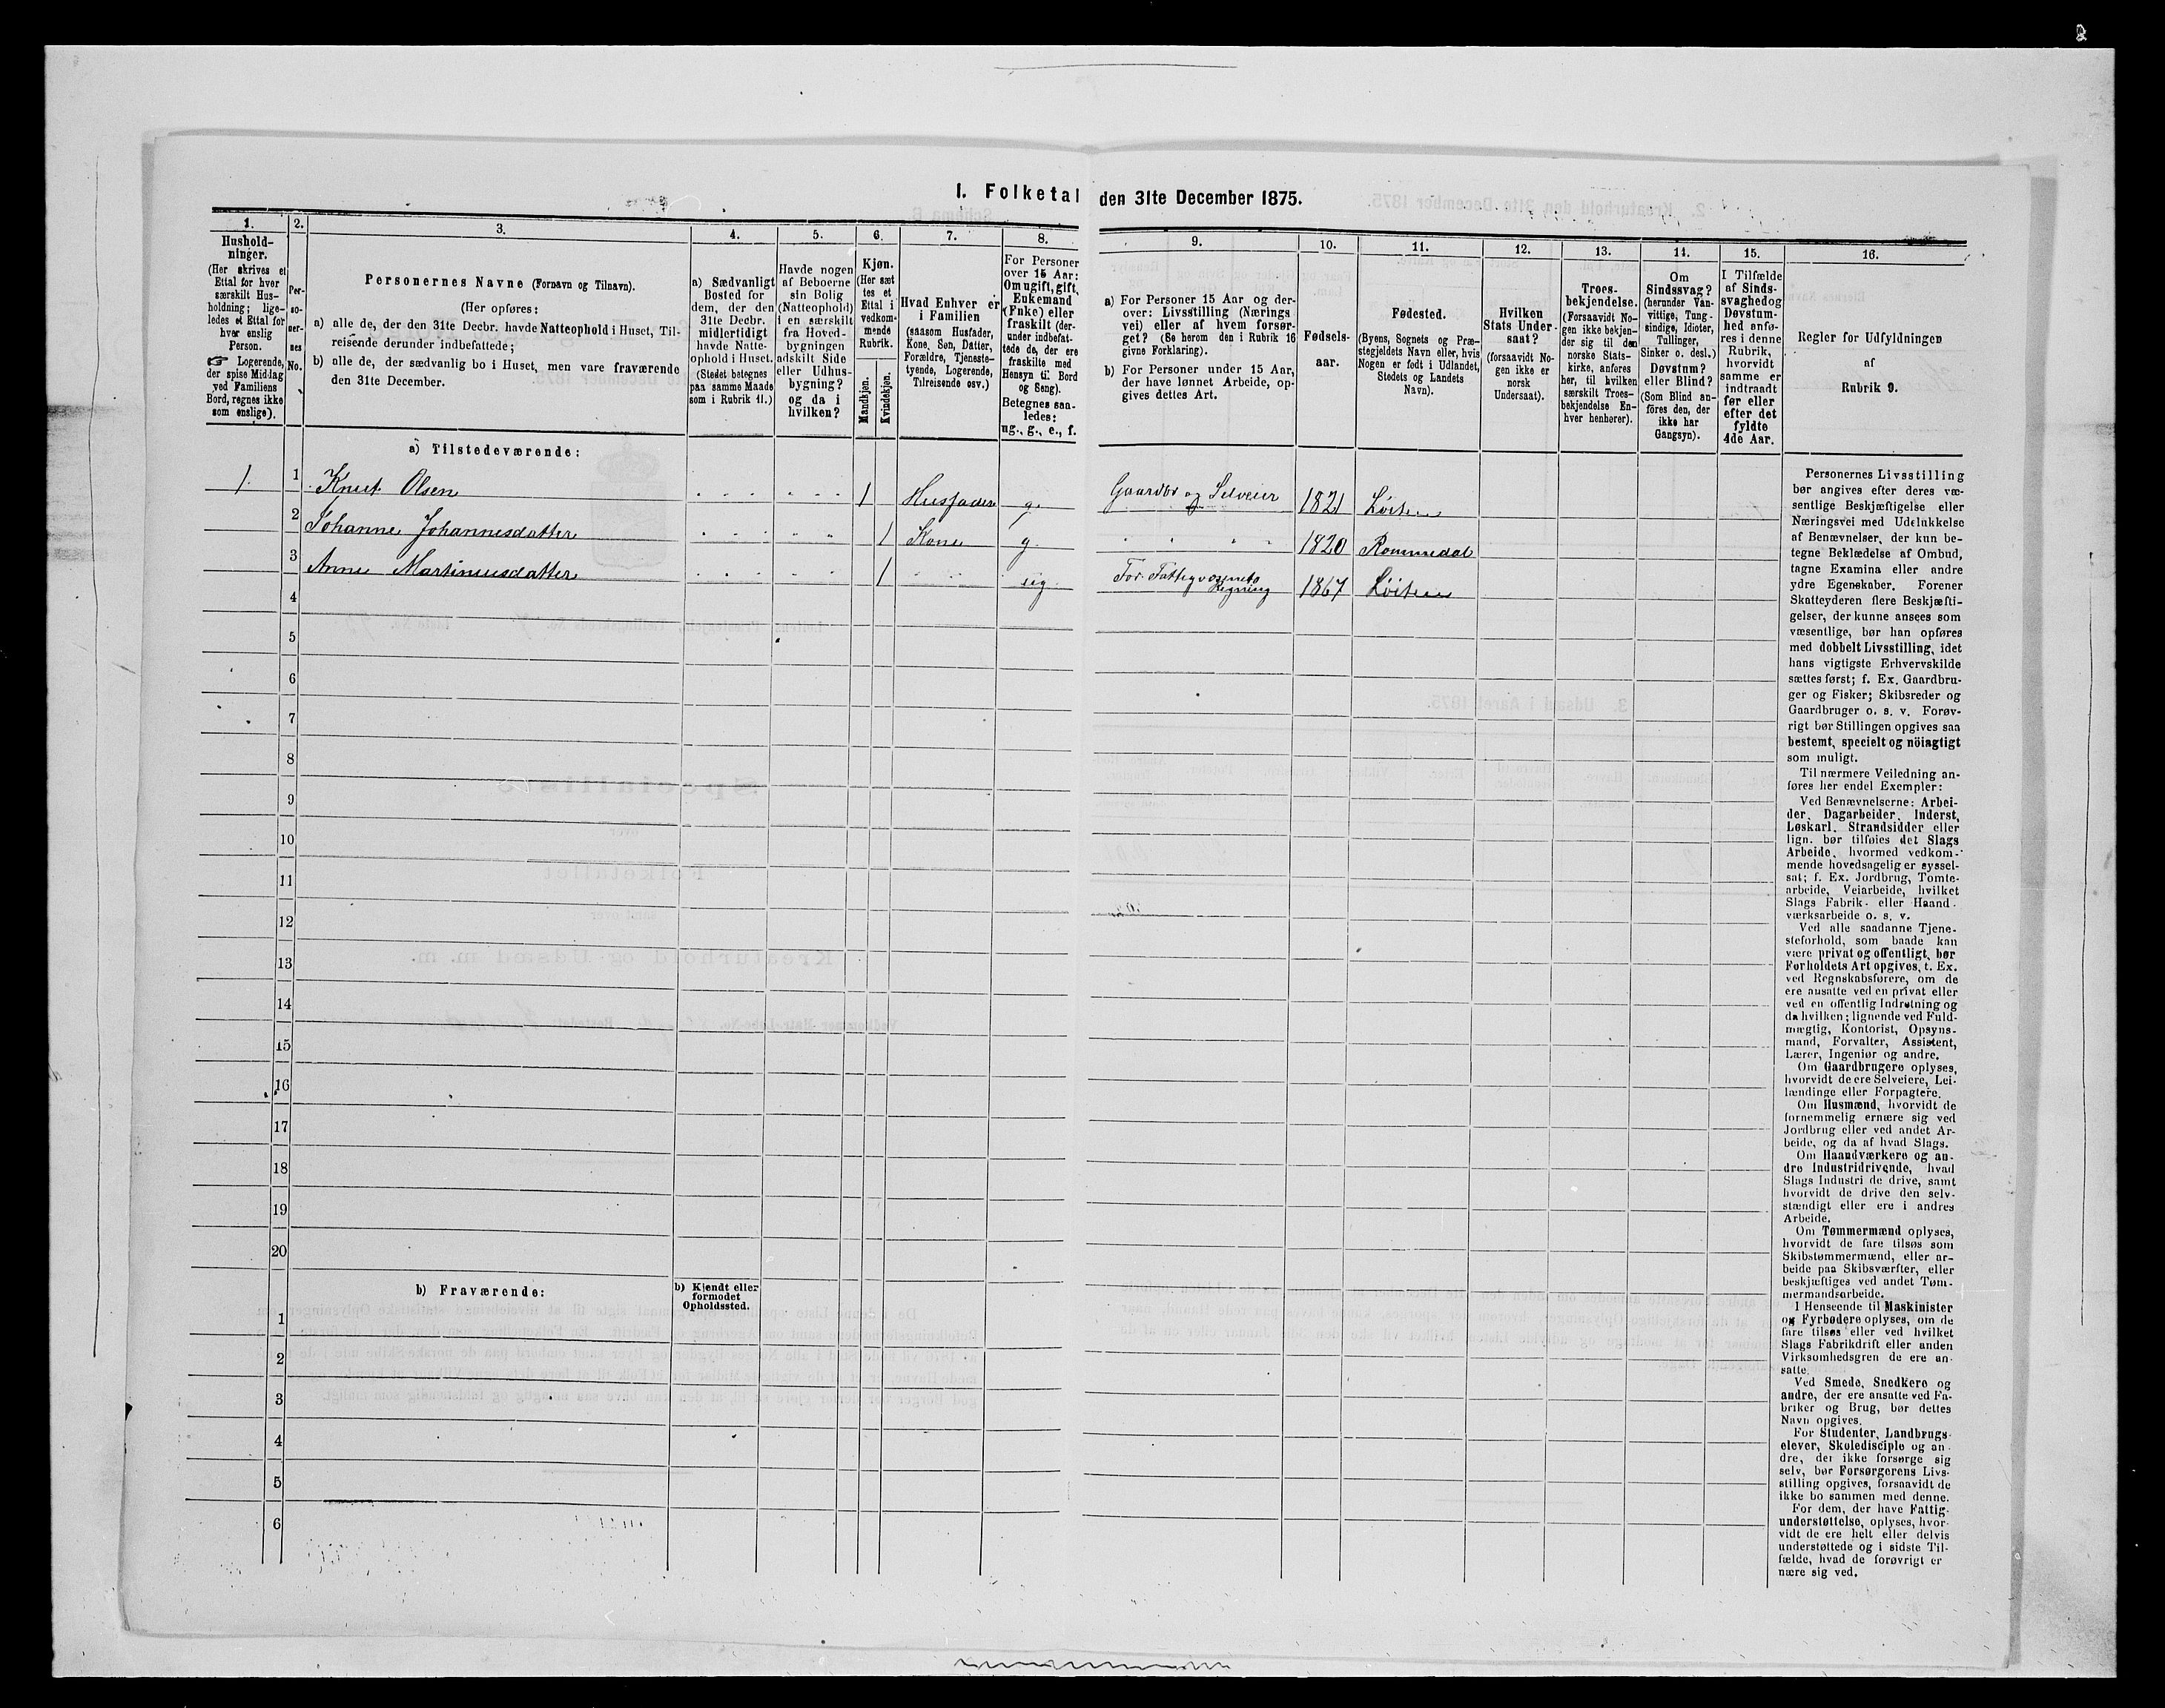 I. Folketal den 31te December 1875.
1.
Hushold-
ninger.
(Her skrives et
Ettal for hver
særskilt Hus-
holdning; lige-
ledes et Ettal for
hver enslig
Person.
☞ Logerende,
der spise Middag
ved Familiens
Bord, regnes ikke
som enslige).
2.
Per-
so-
ner-
nes
No.
3.
Personernes Navne (Fornavn og Tilnavn).
(Her opføres:
a) alle de, der den 31te Decbr. havde Natteophold i Huset, Til-
reisende derunder indbefattede;
b) alle de, der sædvanlig bo i Huset, men vare fraværende
den 31te December.
4.
a) Sædvanligt
Bosted for
dem, der den
31te Decbr.
midlertidigt
havde Natte-
ophold i Huset.
(Stedet betegnes
paa samme Maade
som i Rubrik 11.)
5.
Havde nogen
af Beboerne
sin Bolig
(Natteophold)
i en særskilt
fra Hoved-
bygningen
adskilt Side
eller Udhus-
bygning?
og da i
hvilken?
6.
Kjøn.
(Her sæt
tes et
Ettal i
vedkom-
mende
Rubrik.
Mandkjøn.
Kvindekjøn.
7.
Hvad Enhver er
i Familien
(saasom Husfader,
Kone, Søn, Datter,
Forældre, Tjeneste-
tyende, Logerende,
Tilreisende osv.)
8.
For Personer
over 15 Aar:
Om ugift, gift,
Enkemand
(Enke) eller
fraskilt (der-
under indbefat-
tede de, der ere
fraskilte med
Hensyn til Bord
og Seng).
Betegnes saa-
ledes:
ug., g., e., f.
9.
a) For Personer 15 Aar og der-
over: Livsstilling (Nærings
vei) eller af hvem forsør-
get? (Se herom den i Rubrik 16
givne Forklaring).
b) For Personer under 15 Aar,
der have lønnet Arbeide, op-
gives dettes Art.
10.
Fødsels-
aar.
11.
Fødested.
(Byens, Sognets og Præ-
stegjeldets Navn eller, hvis
Nogen er født i Udlandet,
Stedets og Landets
Navn).
12.
Hvilken
Stats Under-
saat?
(forsaavidt No-
gen ikke er
norsk
Undersaat).
13.
Troes-
bekjendelse.
(Forsaavidt No-
gen ikke bekjen-
der sig til den
norske Stats-
kirke, anføres
her, til hvilken
særskilt Troes-
bekjendelse En-
hver henhører).
14.
Om
Sindssvag?
(herunder Van-
vittige, Tung-
sindige, Idioter,
Tullinger,
Sinker o. desl.)
Døvstum?
eller Blind?
(Som Blind an-
føres den, der
ikke har
Gangsyn).
15.
I Tilfælde
af Sinds-
svaghed og
Døvstum-
hed anfø-
res i denne
Rubrik,
hvorvidt
samme er
indtraadt
før eller
efter det
fyldte
4de Aar.
16.
Regler for Udfyldningen
af
Rubrik 9.
a) Tilstedeværende:
1. 1 Knut Olsen 1 Husfader g. Gaardbr og Selveier 1821 Löiten
2 Johanne Johannesdatter 1 Kone g. 1820 Rommedal
3 Anne Martinusdatter 1 ug For Fattigvæsenets Regning 1867 Löiten
4
5
6
7
8
9
10
11
12
13
14
15
16
17
18
19
20
b) Fraværende:
b) Kjendt eller
formodet
Opholdssted.
1
2
3
4
5
6
Personernes Livsstilling
bør angives efter deres væ-
sentlige Beskjæftigelse eller
Næringsvei med Udelukkelse
af Benævnelser, der kun be-
tegne Beklædelse af Ombud,
tagne Examina eller andre
ydre Egenskaber. Forener
Skatteyderen flere Beskjæfti-
gelser, der kunne ansees som
væsentlige, bør han opføres
med dobbelt Livsstilling, idet
hans vigtigste Erhvervskilde
sættes først; f. Ex. Gaardbru-
ger og Fisker; Skibsreder og
Gaardbruger o. s. v. Forøv-
rigt bør Stillingen opgives saa
bestemt, specielt og nöiagtigt
som muligt.
Til nærmere Veiledning an-
føres her endel Exempler:
Ved Benævnelserne: Arbei-
der, Dagarbeider, Inderst,
Løskarl, Strandsidder eller
lign. bør tilføies det Slags
Arbeide, hvormed vedkom-
mende hovedsagelig er syssel-
sat; f. Ex. Jordbrug, Tomte-
arbeide, Veiarbeide, hvilket
Slags Fabrik- eller Haand-
værksarbeide o. s. v.
Ved alle saadanne Tjene-
steforhold, som baade kan
være privat og offentligt, bør
Forholdets Art opgives, t. Ex.
ved Regnskabsførere, om de
ere ansatte ved en privat eller
ved en offentlig Indretning og
da hvilken; lignende ved Fuld-
mægtig, Kontorist, Opsyns-
mand, Forvalter, Assistent,
Lærer, Ingeniør og andre.
Om Gaardbrugere oplyses,
hvorvidt de ere Selveiere, Lei-
lændinge eller Forpagtere.
Om Husmænd, hvorvidt de
fornemmelig ernære sig ved
Jordbrug eller ved andet Ar-
beide, og da af hvad Slags.
Om Haandværkere og an-
dre Industridrivende, hvad
Slags Industri de drive, samt
hvorvidt de drive den selv-
stændigt eller ere i andres
Arbeide.
Om Tømmermænd oplyses,
hvorvidt de fare tilsøs som
Skibstømmermænd, eller ar-
beide paa Skibsværfter, eller
beskjæftiges ved andet Tøm-
mermandsarbeide.
I Henseende til Maskinister
og Fyrbødere oplyses, om de
fare tilsøs eller ved hvilket
Slags Fabrikdrift eller anden
Virksomhedsgren de ere an-
satte.
Ved Smede, Snedkere og
andre, der ere ansatte ved Fa-
briker og Brug, bør dettes
Navn opgives.
For Studenter, Landbrugs-
elever, Skoledisciple og an-
dre, der ikke forsørge sig
selv, bør Forsørgerens Livs-
stilling opgives, forsaavidt de
ikke bo sammen med denne.
For dem, der have Fattig-
understøttelse, oplyses, hvor-
vidt de ere helt eller delvis
understøttede og i sidste Til-
fælde, hvad de forøvrigt er
nære sig ved.